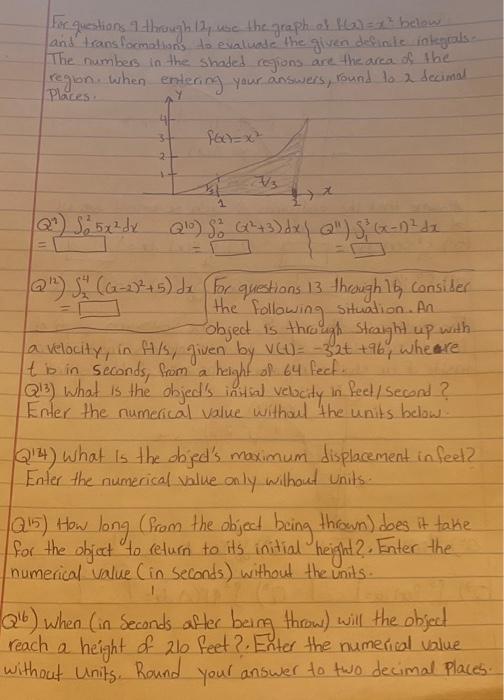 For questions 9 through 12, use the graph of f(x)=x² below
and transformations to evaluate the given definite integrals.
The numbers in the shaded regions are the area of the
region. When entering your answers, round to 2 decimal
Places.
Y
4
3
2
1
f(x)=x²
1/3
7/3
1
2
x
Q9) ∫₀² 5x² dx Q10) ∫₀² (x²+3) dx Q11) ∫₁³ (x-1)² dx
= = =
Q12) ∫₂⁴ ((x-2)²+5) dx
=
For questions 13 through 16, consider
the following situation. An
object is through straight up with
a velocity, in ft/s, given by V(t)= -32t +96, wheere
t is in seconds, from a height of 64 feet.
Q13) What is the object's initial velocity in feet/second?
Enter the numerical value without the units below.
Q14) what is the object's maximum displacement in feet?
Enter the numerical value only without units.
Q15) How long (from the object being thrown) does it take
for the object to return to its initial height?. Enter the
numerical value (in seconds) without the units.
Q16) when (in Seconds after being throw) will the object
reach a height of 210 feet?. Enter the numerical value
without units. Round your answer to two decimal places.